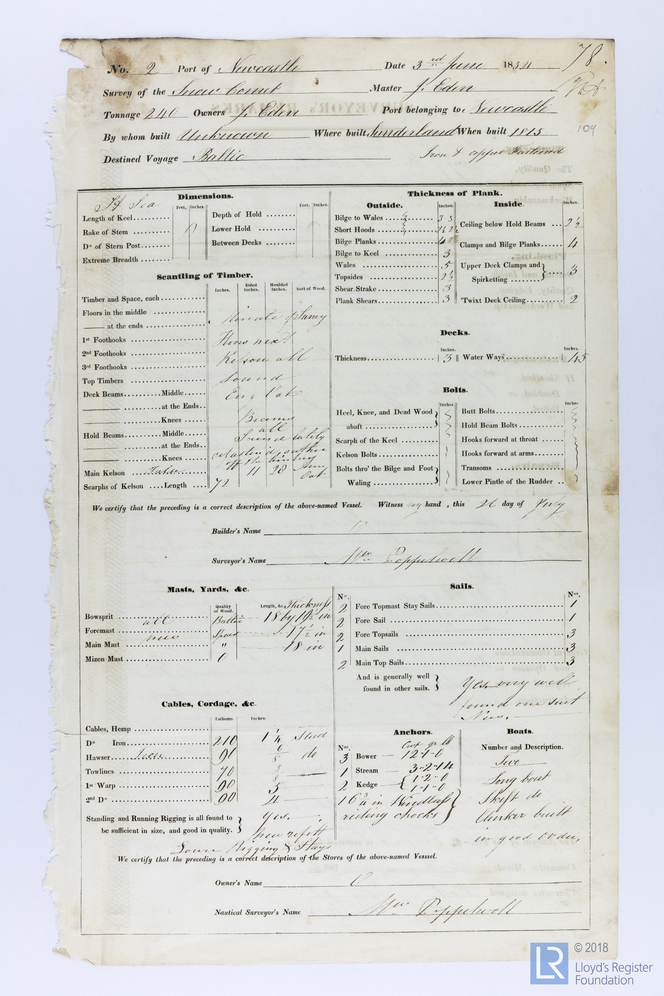 No. 2 Port of Newcastle Date 3rd June 1834 78.
Survey of the Snow Comet Master J. Eden
Tonnage 240 Owners J. Eden Port belonging to Newcastle 104
By whom built Unknown Where built Sunderland When built 1815
Destined Voyage Baltic Iron & copper Fastened
Dimensions.
Length of Keel
Rake of Stem
Do of Stern Post
Extreme Breadth
Feet. Inches.
Depth of Hold
Lower Hold
Between Decks
Feet. Inches.
Thickness of Plank.
Outside. Inches.
Bilge to Wales
Short Hoods
Bilge Planks
Bilge to Keel 3
Wales 5
Topsides 2½
Shear Strake 3
Plank Shears 3
Inside. Inches.
Ceiling below Hold Beams 2½
Clamps and Bilge Planks 4
Upper Deck Clamps and Spirketting 3
'Twixt Deck Ceiling 2
Scantling of Timber.
Inches. Sided Inches. Moulded Inches. Sort of Wood.
Timber and Space, each
Floors in the middle
—— at the ends
1st Foothooks
2nd Foothooks
3rd Foothooks
Top Timbers
Deck Beams Middle
—— at the Ends
—— Knees
Hold Beams Middle
—— at the Ends
—— Knees
Main Kelson
Scarphs of Kelson Length
Kelson all
Sound
Eng Oak
Beams
all
Decks.
Thickness 3 Inches. Water Ways 4.5 Inches.
Bolts.
Heel, Knee, and Dead Wood abaft
Scarph of the Keel
Kelson Bolts
Bolts thro' the Bilge and Foot Waling
Inches.
Butt Bolts
Hold Beam Bolts
Hooks forward at throat
Hooks forward at arms
Transoms
Lower Pintle of the Rudder
Inches.
We certify that the preceding is a correct description of the above-named Vessel. Witness my hand, this 26 day of July
Builder's Name
Surveyor's Name Wm Poppelwell
Masts, Yards, &c.
Quality of Wood. Length, &c. Thickness
Bowsprit all Baltic 18 by 19½ in
Foremast new Spruce 17½ in
Main Mast " 18 in
Mizen Mast 0
Sails.
No. No.
2 Fore Topmast Stay Sails 1
2 Fore Sail 1
2 Fore Topsails 3
1 Main Sails 3
2 Main Top Sails 3
And is generally well found in other sails.
Yes very well
found one suit
New.
Cables, Cordage, &c.
Fathoms. Inches.
Cables, Hemp
Do Iron 210 Stud
Hawser 91 6 do
Towlines 70
1st Warp 90 5
2nd Do 90 4
Standing and Running Rigging is all found to be sufficient in size, and good in quality.
Yes.
new refitt
Lower Rigging & Stays
Anchors.
No. Cwt qr lb
3 Bower 12-1-0
1 Stream 3-2-14
2 Kedge 1-2-0
1-1-0
in Windlass
riding chocks
Boats.
Number and Description.
Two
Long boat
Skiff do
Clinker built
in good order,
We certify that the preceding is a correct description of the Stores of the above-named Vessel.
Owner's Name
Nautical Surveyor's Name Wm Poppelwell
LR
© 2018
Lloyd's Register
Foundation